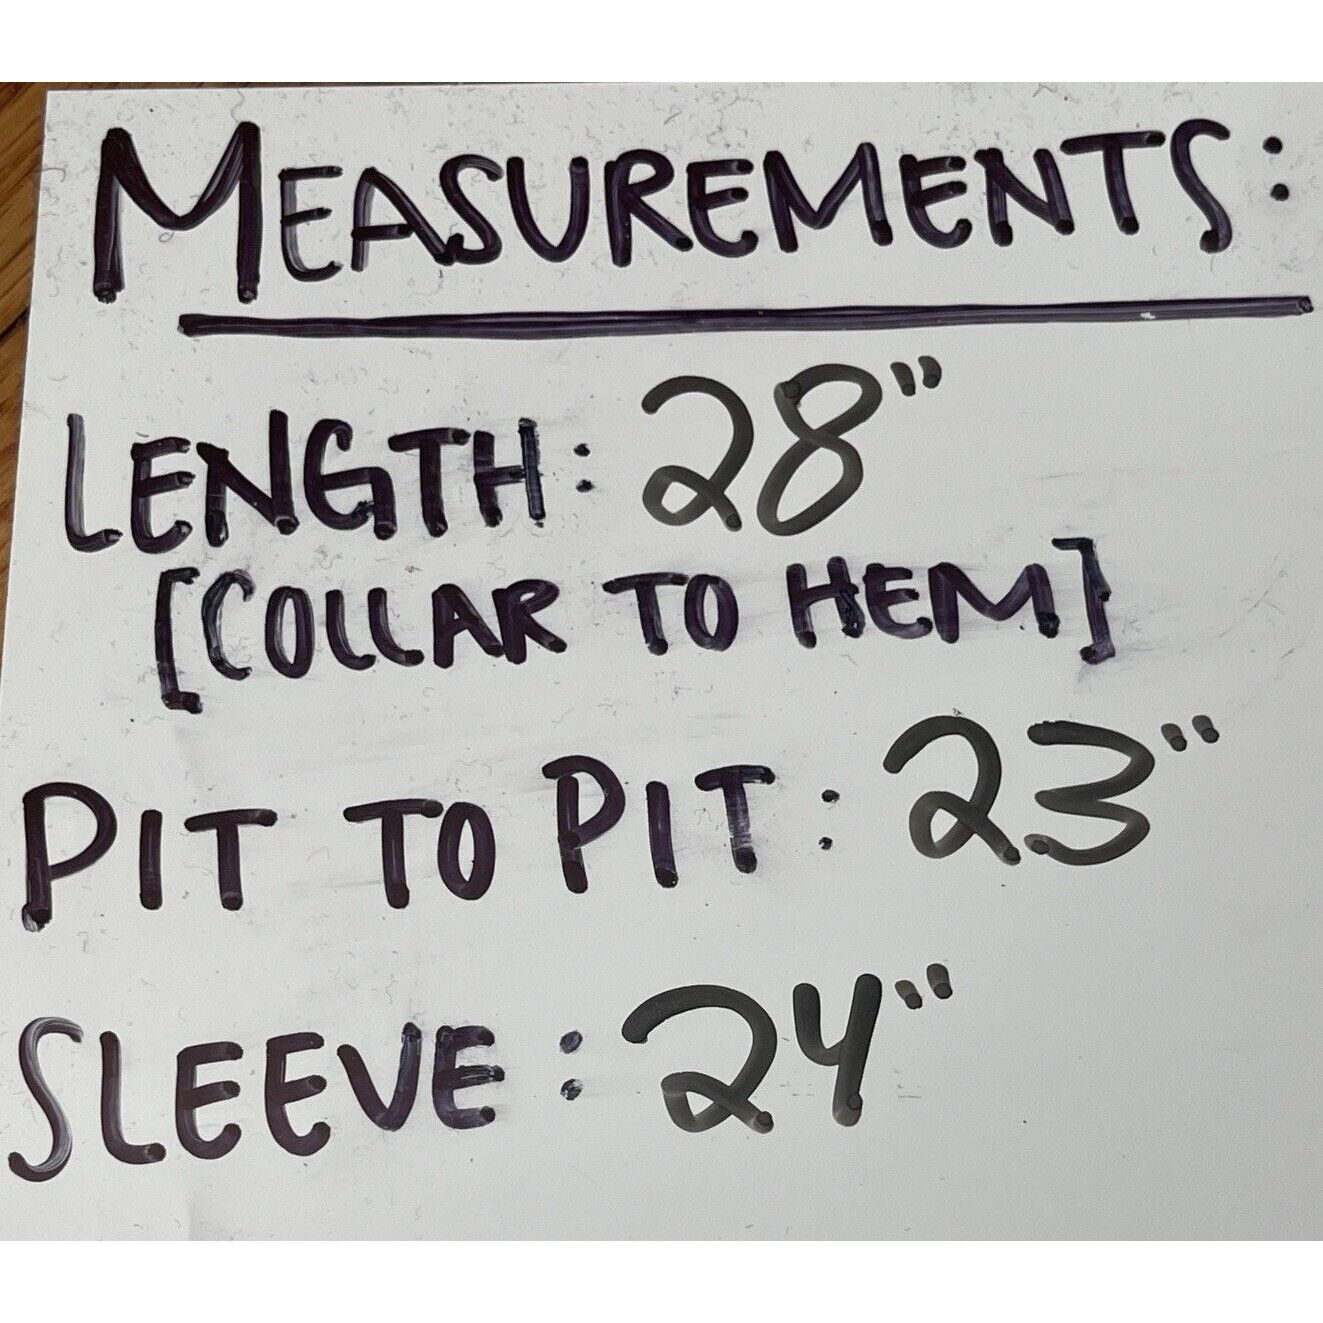 MEASUREMENTS:
LENGTH: 28"
[COLLAR TO HEM]
PIT TO PIT: 23"
SLEEVE: 24"